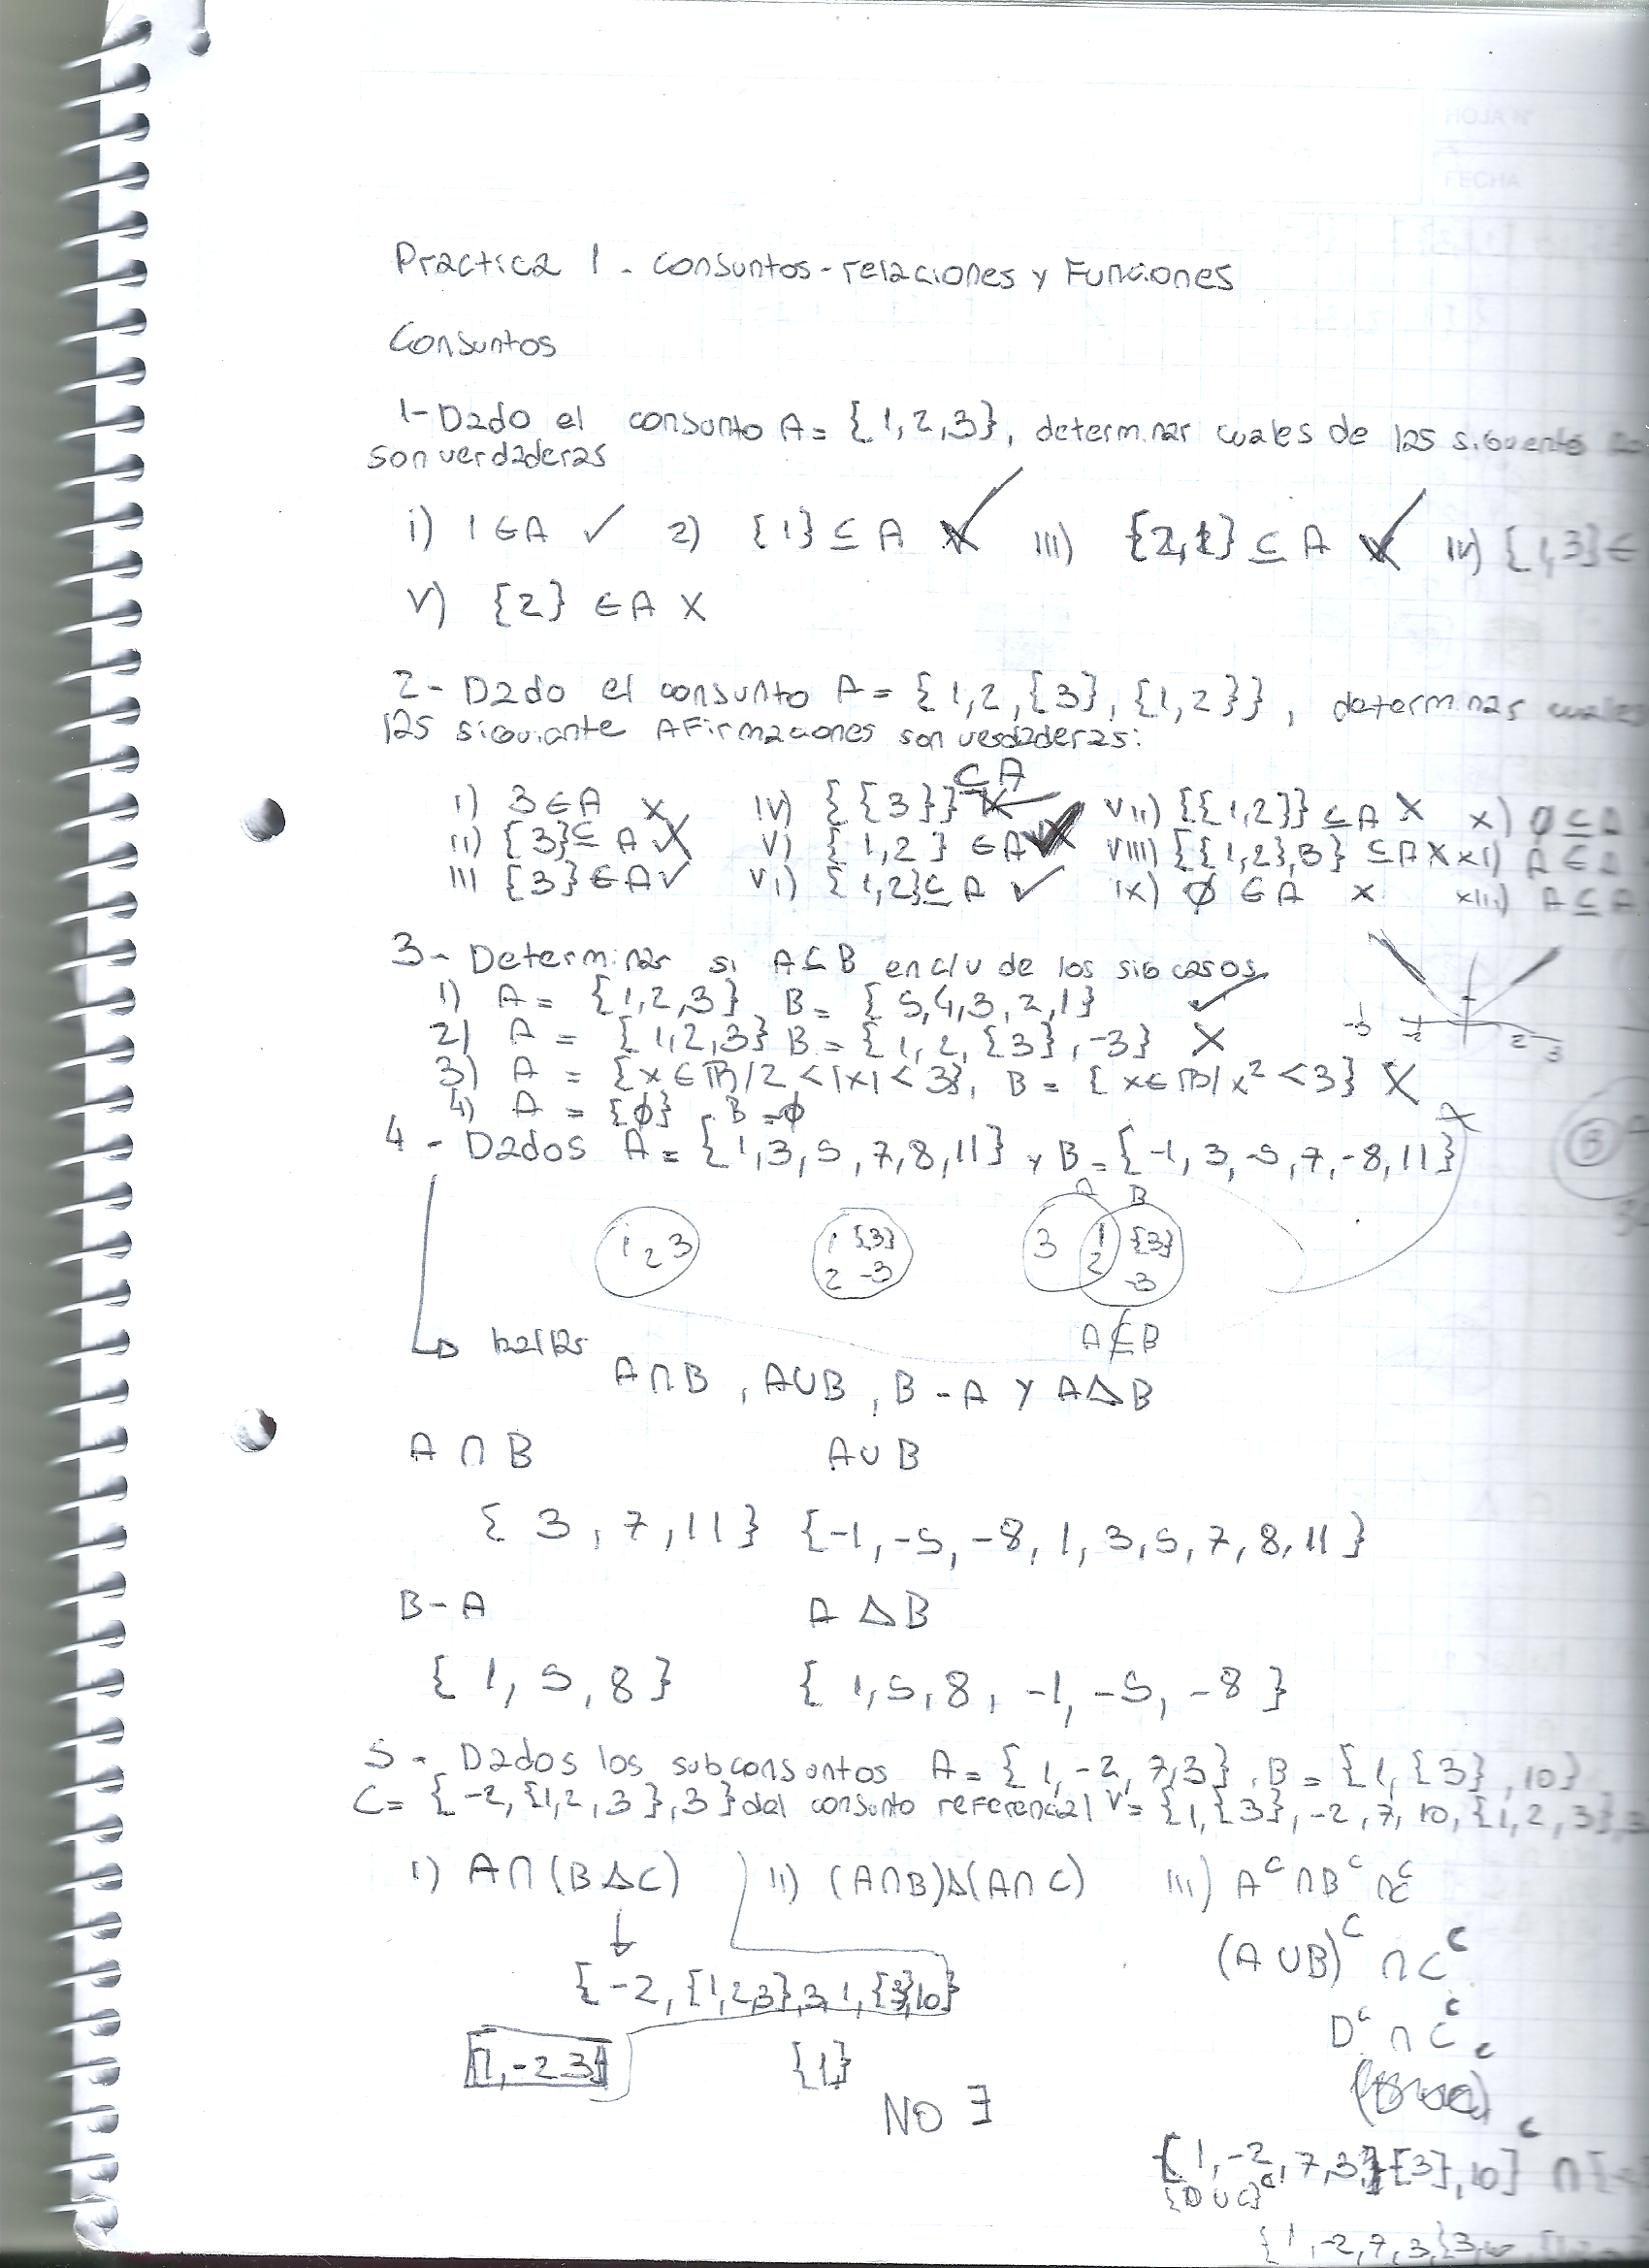 HOJA N°
FECHA
Practica 1 - Consuntos - relaciones y Funciones
Consuntos
1- Dado el consunto A = {1,2,3}, determinar cuales de las siguente
son verdaderas
i) 1 ∈ A ✓ 2) {1} ⊆ A ✓ III) {2,1} ⊆ A ✓ IV) {1,3} ∈
V) {2} ∈ A X
2- Dado el consunto A = {1,2,{3},{1,2}}, determinar cuales
las siguiante AFirmaciones son verdaderas:
⊆ A
I) 3 ∈ A X IV) {{3}} VII) {{1,2}} ⊆ A X X) ∅ ⊆ A
II) {3} ⊆ A X V) {1,2} ∈ A VIII) {{1,2},3} ⊆ A X XI) A ∈ A
III {3} ∈ A ✓ VI) {1,2} ⊆ A ✓ IX) ∅ ∈ A X XII) A ⊆ A
3- Determinar si A ⊆ B en c/u de los sig casos
1) A = {1,2,3} B = {5,4,3,2,1} ✓
2) A = {1,2,3} B = {1,2,{3},-3} X
3) A = {x ∈ R / 2 < |x| < 3}, B = {x ∈ R / x² < 3} X
4) A = {∅}, B = ∅ X
-3 -2 2 3
4- Dados A = {1,3,5,7,8,11} y B = {-1,3,-5,7,-8,11}
A B
1 2 3 1 {3} 3 1 {3}
2 -3 2 -3
A ⊈ B
hallar
A∩B, A∪B, B-A y A△B
A∩B A∪B
{3,7,11} {-1,-5,-8,1,3,5,7,8,11}
B-A A△B
{1,5,8} {1,5,8,-1,-5,-8}
5- Dados los subconsontos A = {1,-2,7,3}, B = {1,{3},10}
C = {-2,{1,2,3},3} del consunto referencial V = {1,{3},-2,7,10,{1,2,3},3
I) A∩(B△C) II) (A∩B)△(A∩C) III) Aᶜ∩Bᶜ∩Cᶜ
(A∪B)ᶜ∩Cᶜ
{-2,{1,2,3},3,1,{3},10}
Dᶜ∩Cᶜ
{1,-2 3} {1}
NO ∃
{1,-2,7,3,{3},10}ᶜ ∩ {
{D∪C}ᶜ
{1,-2,7,3,{3,